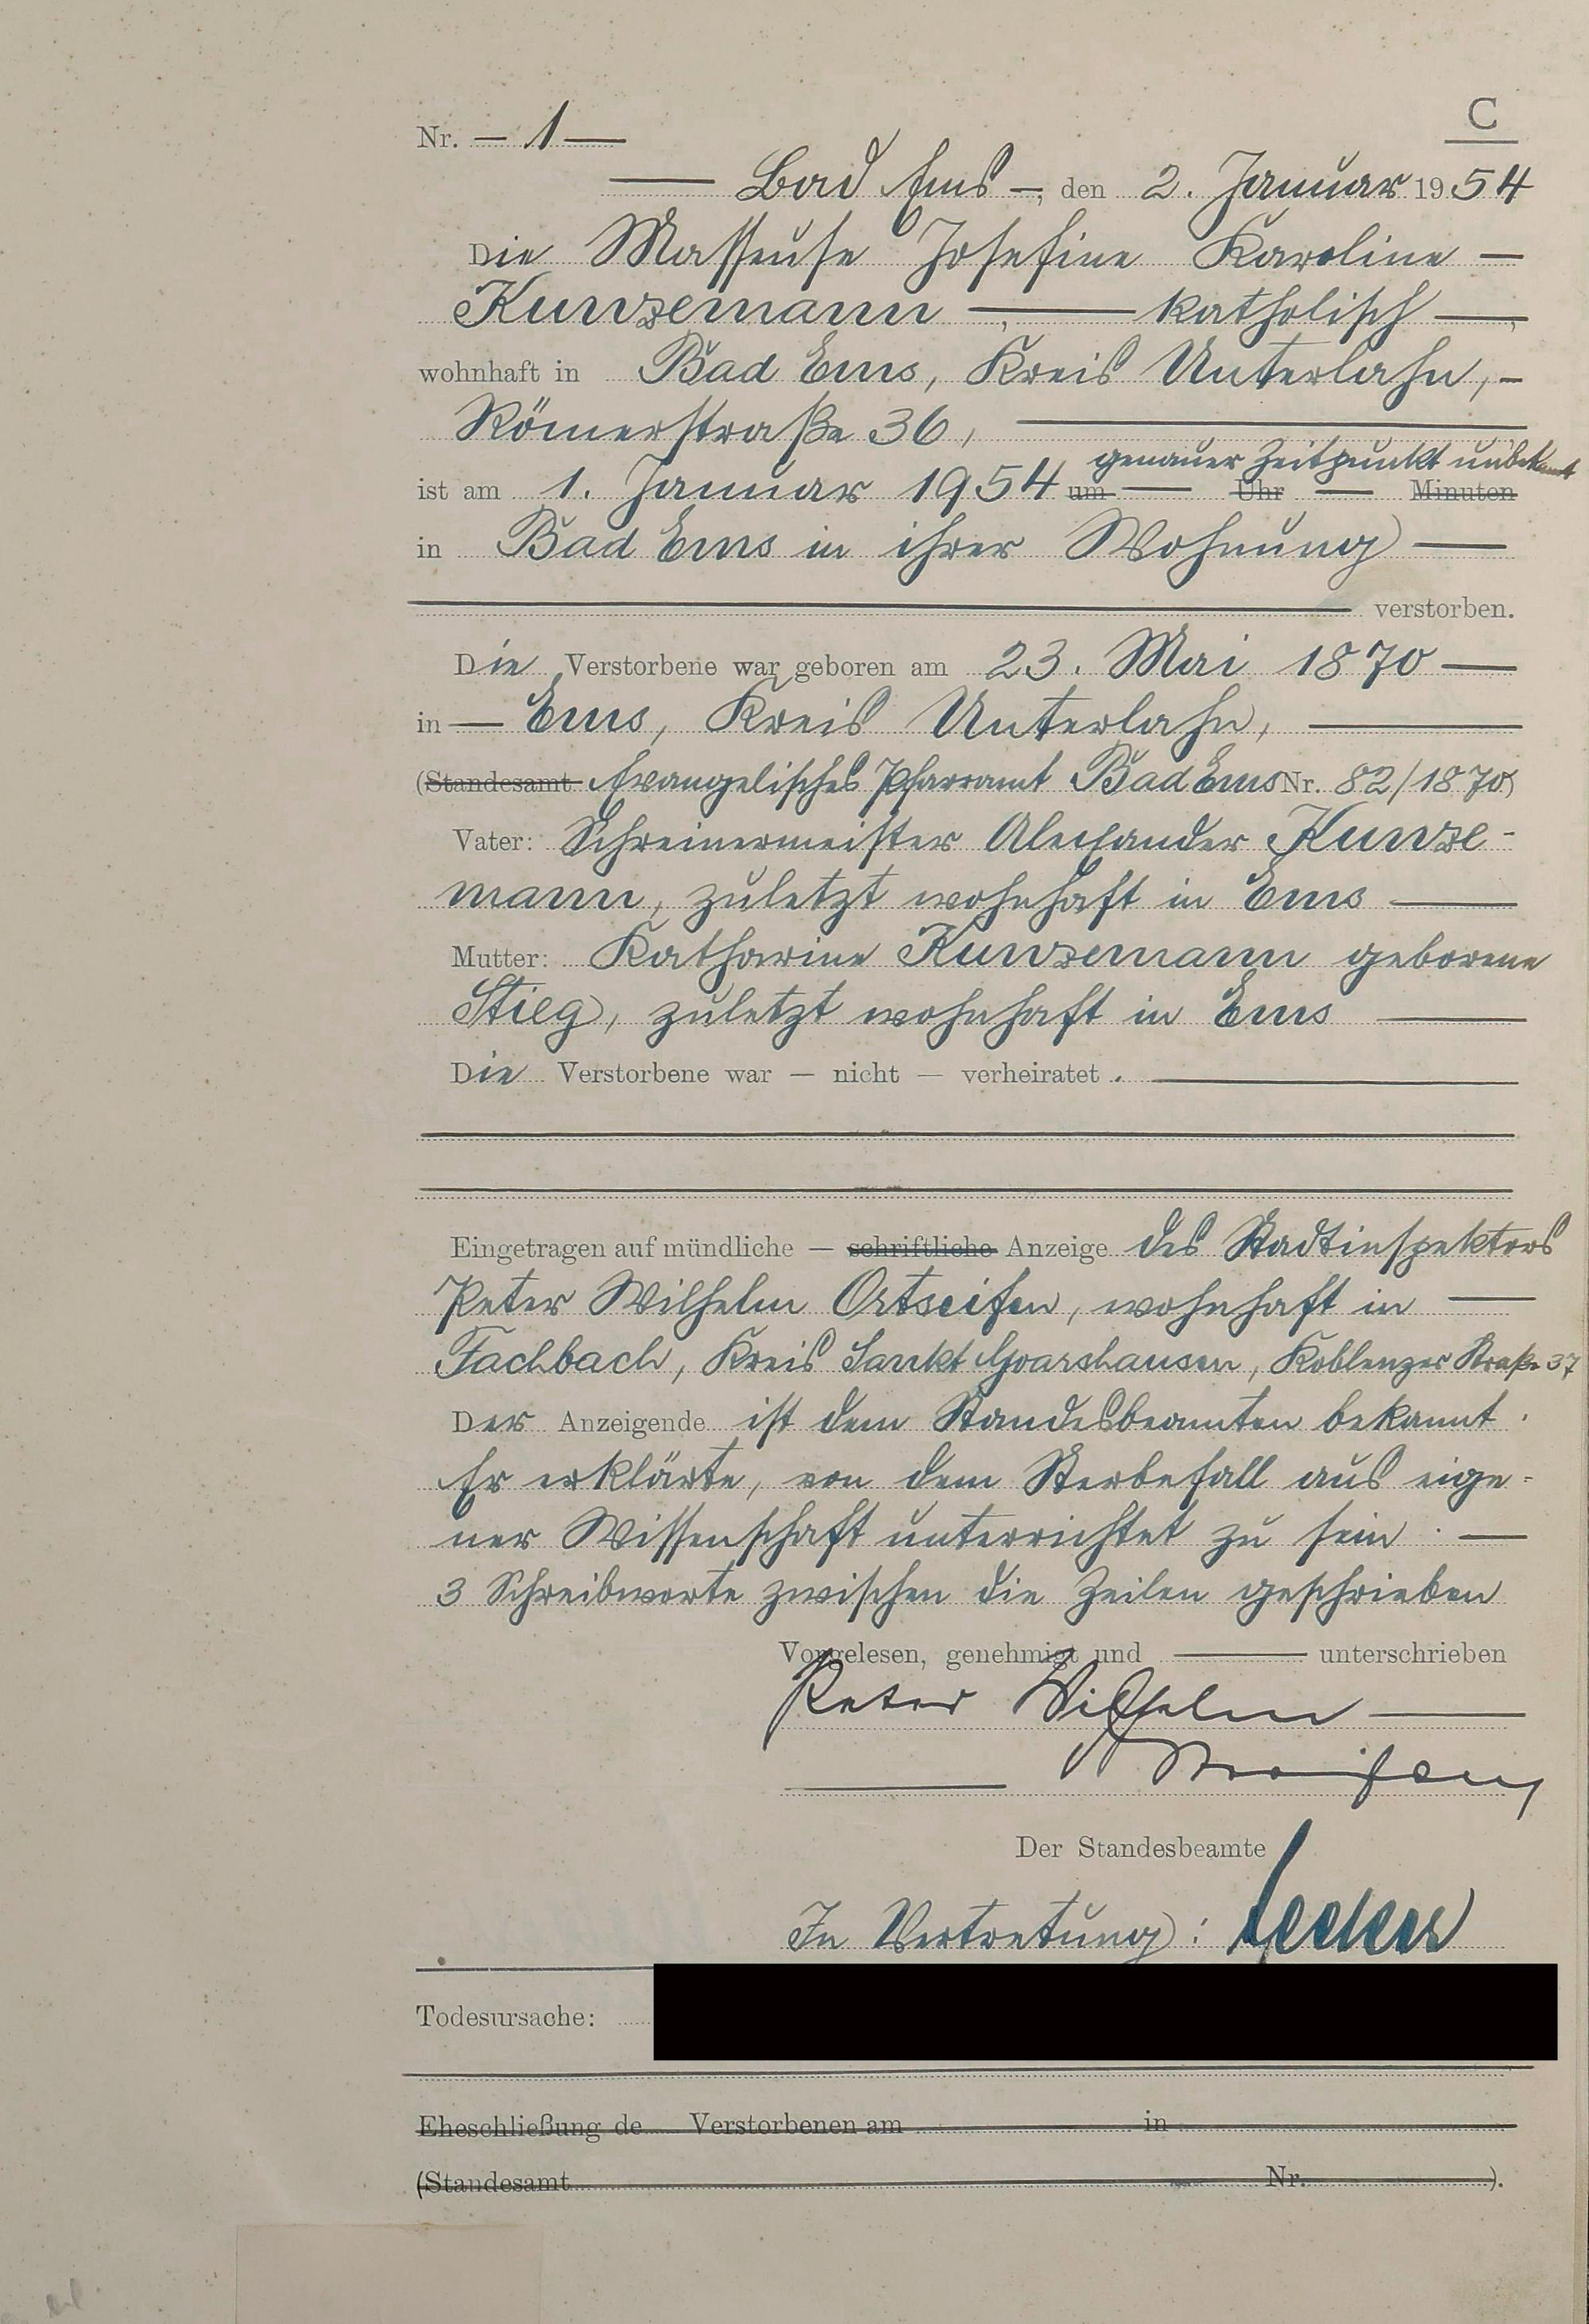 Nr. — 1 —
C
— Bad Ems —, den 2. Januar 1954
Die Masseuse Josefine Karoline —
Kunzemann —, — katholisch —,
wohnhaft in Bad Ems, Kreis Unterlahn, —
Römerstraße 36, —
genauer Zeitpunkt unbekannt
ist am 1. Januar 1954 um — Uhr — Minuten
in Bad Ems in ihrer Wohnung —
— verstorben.
Die Verstorbene war geboren am 23. Mai 1870 —
in — Ems, Kreis Unterlahn, —
(Standesamt Evangelisches Pfarramt Bad Ems Nr. 82/1870)
Vater: Schreinermeister Alexander Kunze-
mann, zuletzt wohnhaft in Ems —
Mutter: Katharine Kunzemann geborene
Stieg, zuletzt wohnhaft in Ems —
Die Verstorbene war — nicht — verheiratet. —
Eingetragen auf mündliche — schriftliche Anzeige des Stadtinspektors
Peter Wilhelm Ortseifen, wohnhaft in —
Fachbach, Kreis Sankt Goarshausen, Koblenzer Straße 37
Der Anzeigende ist dem Standesbeamten bekannt.
Er erklärte, von dem Sterbefall aus eige-
ner Wissenschaft unterrichtet zu sein. —
3 Schreibworte zwischen die Zeilen geschrieben
Vorgelesen, genehmigt und — unterschrieben
Peter Wilhelm —
— Ortseifen
Der Standesbeamte
In Vertretung:
Todesursache:
Eheschließung de Verstorbenen am in
(Standesamt Nr. ).